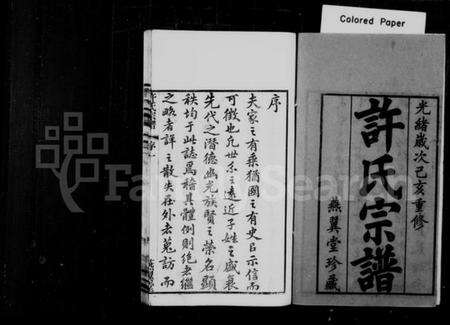 Colored Paper
光緒歲次己亥重修
許氏宗譜
燕翼堂珍藏
序
夫家之有乘猶國之有史日示信而
可徵也凡世系之遠近子姓之盛衰
先代之潛德幽光族賢之榮名顯
秩均于此誌焉稽具體例則絕者繼
之略者詳之散失在外者蒐訪而
FamilySearch